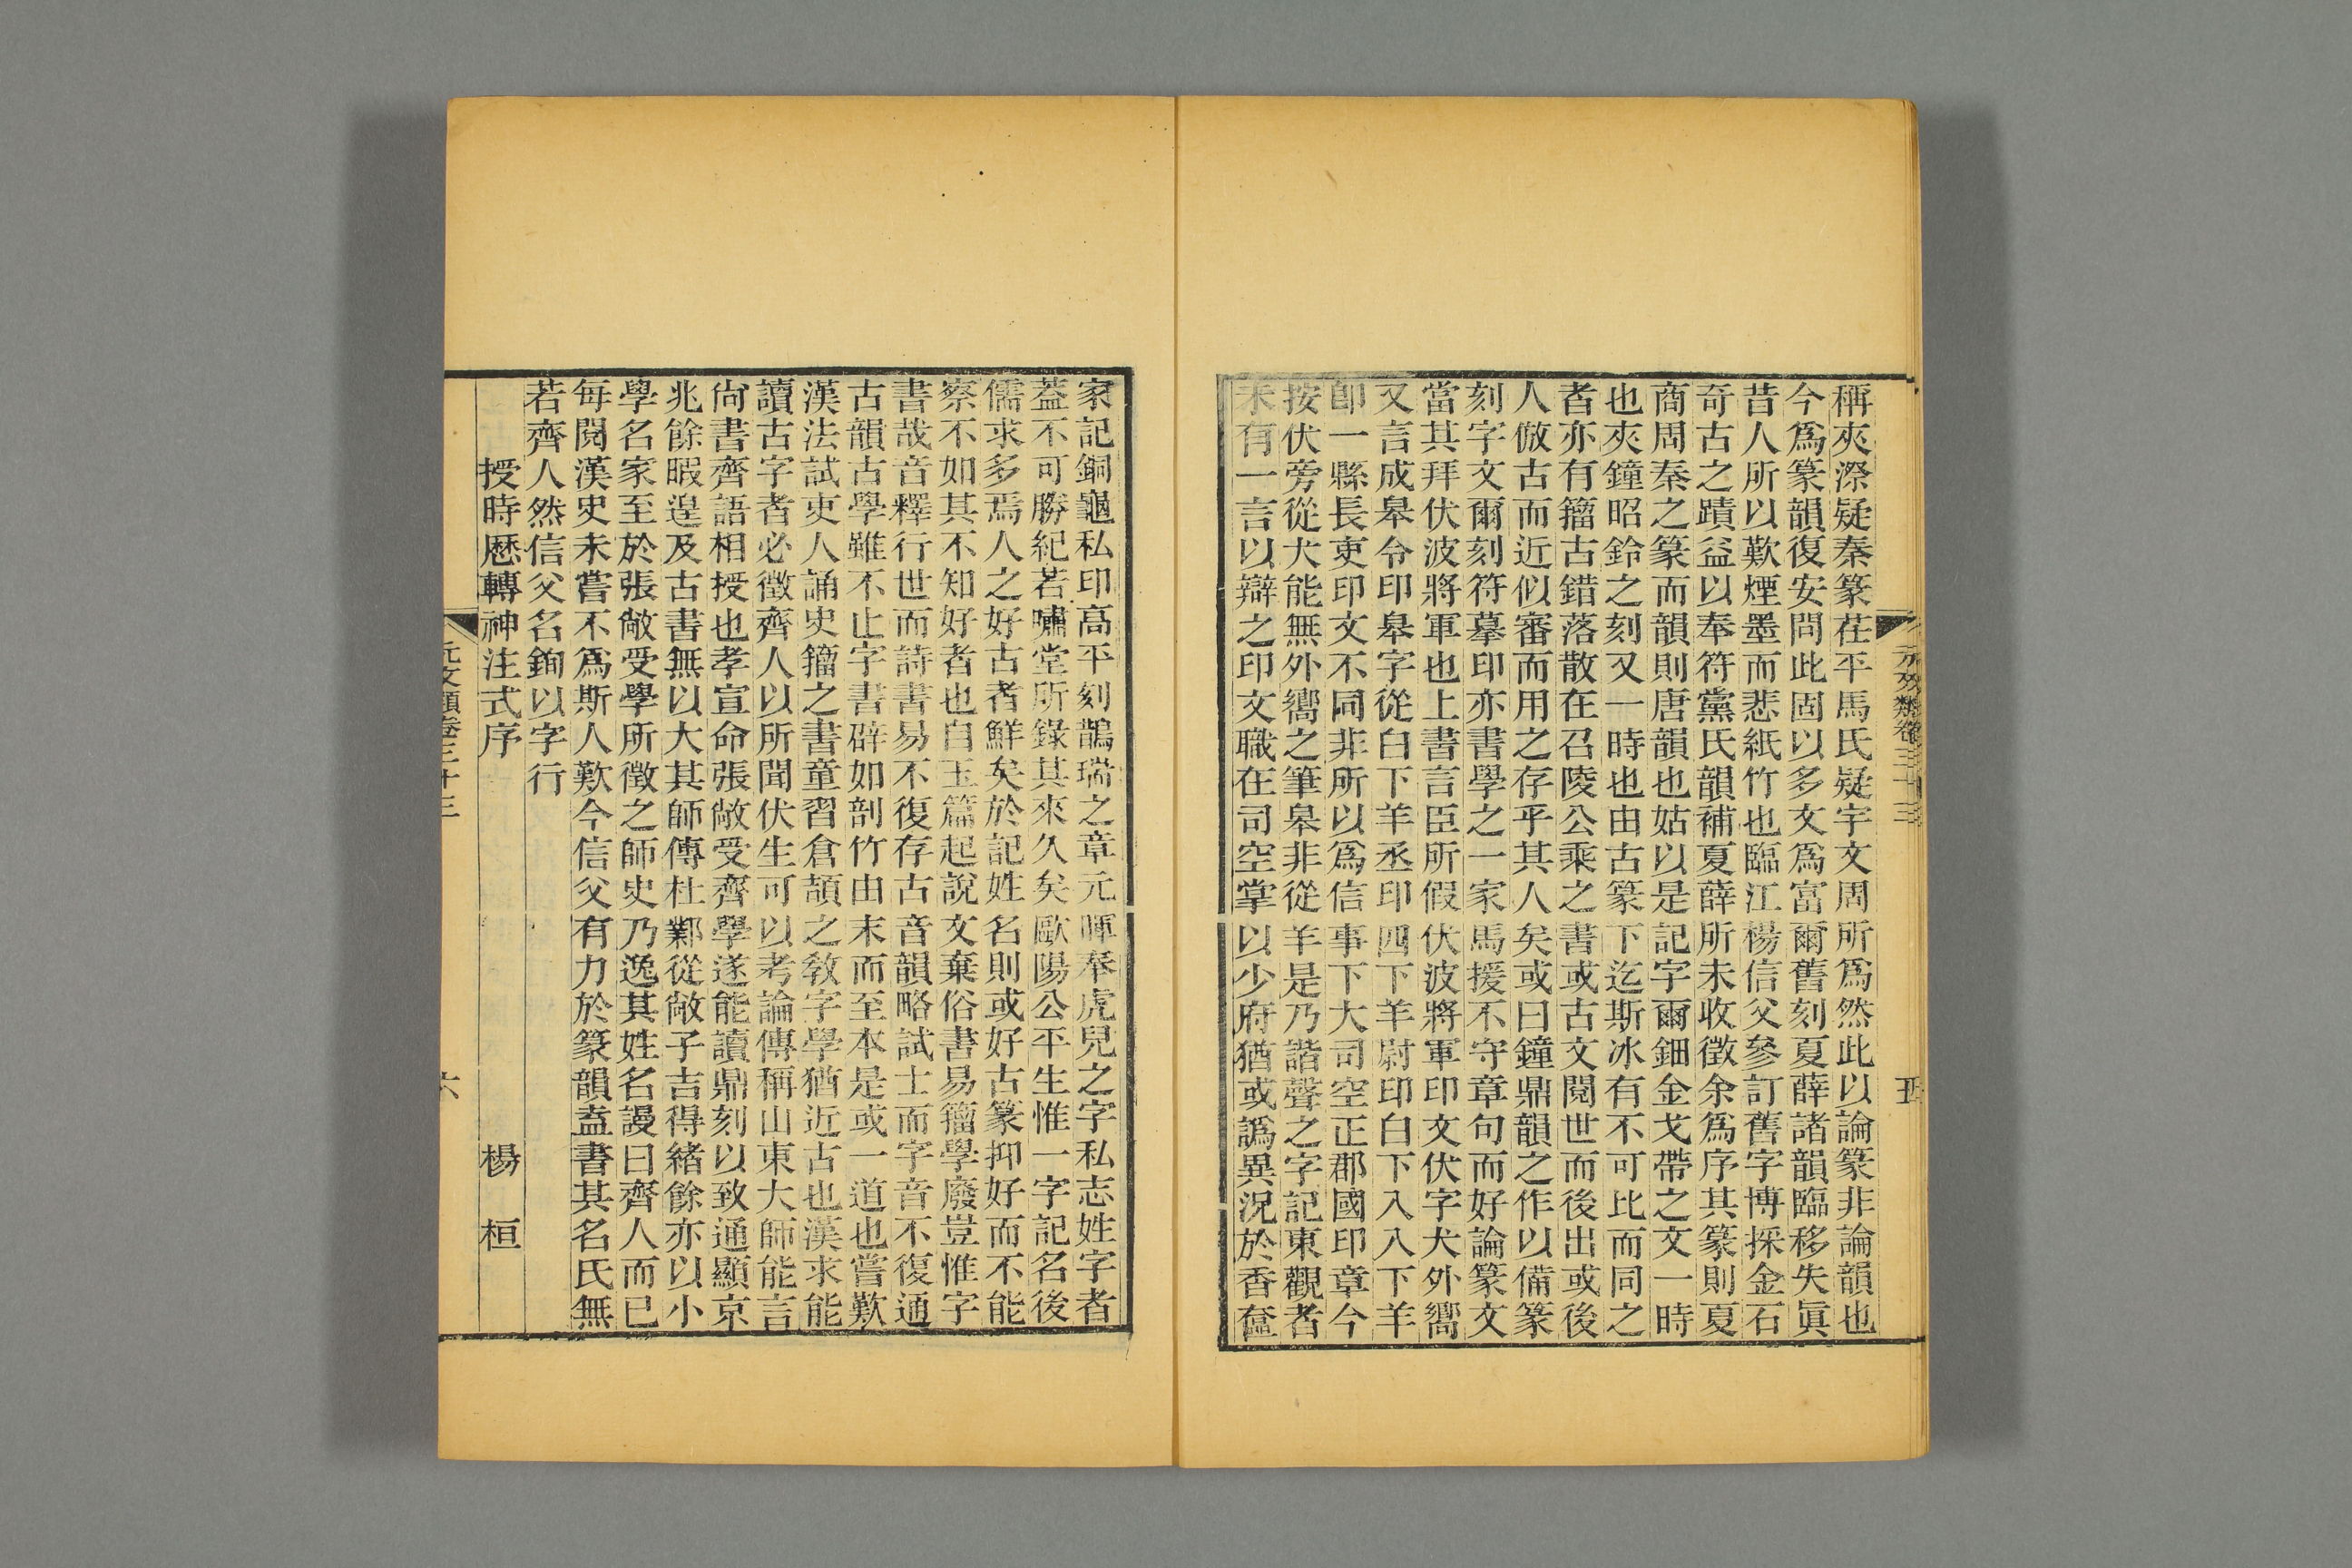 稱夾漈疑秦篆茌平馬氏疑宇文周所爲然此以論篆非論韻也
今爲篆韻復安問此固以多文爲富爾舊刻夏薛諸韻臨移失眞
昔人所以歎煙墨而悲紙竹也臨江楊信父參訂舊字博採金石
奇古之蹟益以奉符黨氏韻補夏薛所未收徵余爲序其篆則夏
商周秦之篆而韻則唐韻也姑以是記字爾鈿金戈帶之文一時
也夾鐘昭鈴之刻又一時也由古篆下迄斯冰有不可比而同之
者亦有籀古錯落散在召陵公乘之書或古文閱世而後出或後
人倣古而近似審而用之存乎其人矣或曰鐘鼎韻之作以備篆
刻字文爾刻符摹印亦書學之一家馬援不守章句而好論篆文
當其拜伏波將軍也上書言臣所假伏波將軍印文伏字犬外嚮
又言成皋令印皋字從白下羊丞印四下羊尉印白下入入下羊
卽一縣長吏印文不同非所以爲信事下大司空正郡國印章今
按伏旁從犬能無外嚮之筆皋非從羊是乃諧聲之字記東觀者
未有一言以辯之印文職在司空掌以少府猶或譌異況於香奩
家記銅龜私印高平刻鵲瑞之章元暉奉虎兒之字私志姓字者
蓋不可勝紀若嘯堂所錄其來久矣歐陽公平生惟一字記名後
儒求多焉人之好古者鮮矣於記姓名則或好古篆抑好而不能
察不如其不知好者也自玉篇起說文棄俗書易籀學廢豈惟字
書哉音釋行世而詩書易不復存古音韻略試士而字音不復通
古韻古學雖不止字書辟如剖竹由末而至本是或一道也嘗歎
漢法試吏人誦史籀之書童習倉頡之敎字學猶近古也漢求能
讀古字者必徵齊人以所聞伏生可以考論傳稱山東大師能言
尙書齊語相授也孝宣命張敞受齊學遂能讀鼎刻以致通顯京
兆餘暇遑及古書無以大其師傳杜鄴從敞子吉得緒餘亦以小
學名家至於張敞受學所徵之師史乃逸其姓名謾曰齊人而已
每閱漢史未嘗不爲斯人歎今信父有力於篆韻盍書其名氏無
若齊人然信父名鉤以字行
授時歷轉神注式序　楊　桓
元文類卷三十三
六